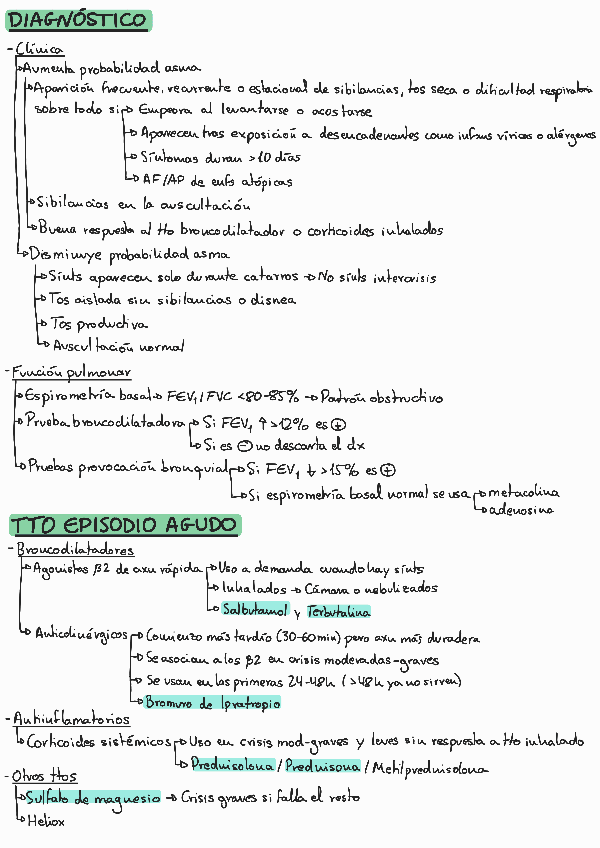 DIAGNÓSTICO
- Clínica
→ Aumenta probabilidad asma
→ Aparición frecuente, recurrente o estacional de sibilancias, tos seca o dificultad respiratoria
sobre todo si → Empeora al levantarse o acostarse
→ Aparecen tras exposición a desencadenantes como infxns víricas o alérgenos
→ Síntomas duran >10 días
→ AF/AP de enfs atópicas
→ Sibilancias en la auscultación
→ Buena respuesta al tto broncodilatador o corticoides inhalados
→ Disminuye probabilidad asma
→ Sínts aparecen solo durante catarros → No sínts intercrisis
→ Tos aislada sin sibilancias o disnea
→ Tos productiva
→ Auscultación normal
- Función pulmonar
→ Espirometría basal → FEV₁/FVC <80-85% → Patrón obstructivo
→ Prueba broncodilatadora → Si FEV₁ ↑ >12% es ⊕
→ Si es ⊖ no descarta el dx
→ Pruebas provocación bronquial → Si FEV₁ ↓ >15% es ⊕
→ Si espirometría basal normal se usa → metacolina
→ adenosina
TTO EPISODIO AGUDO
- Broncodilatadores
→ Agonistas β2 de axn rápida → Uso a demanda cuando hay sínts
→ Inhalados → Cámara o nebulizados
→ Salbutamol y Terbutalina
→ Anticolinérgicos → Comienzo más tardío (30-60min) pero axn más duradera
→ Se asocian a los β2 en crisis moderadas-graves
→ Se usan en las primeras 24-48h (>48h ya no sirven)
→ Bromuro de Ipratropio
- Antiinflamatorios
→ Corticoides sistémicos → Uso en crisis mod-graves y leves sin respuesta a tto inhalado
→ Prednisolona / Prednisona / Metilprednisolona
- Otros ttos
→ Sulfato de magnesio → Crisis graves si falla el resto
→ Heliox